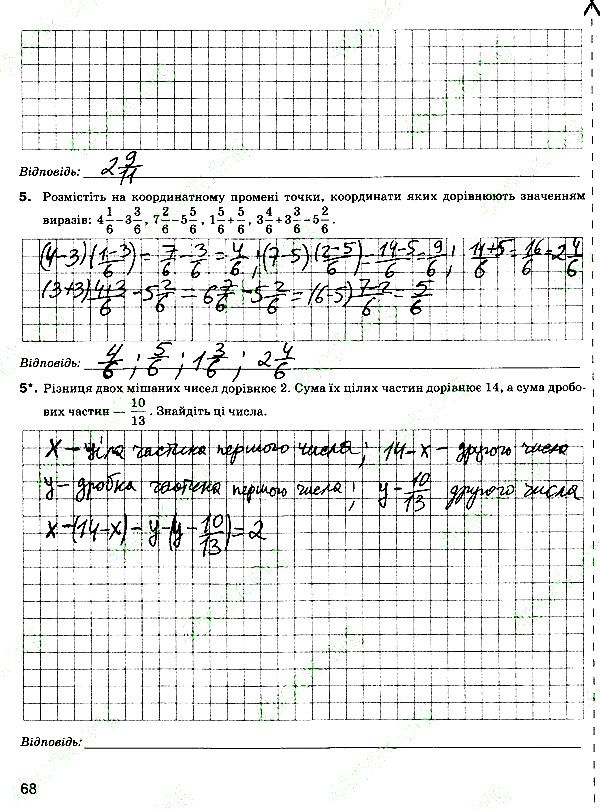 Відповідь: 2 9/11
5. Розмістіть на координатному промені точки, координати яких дорівнюють значенням
виразів: 4 1/6 − 3 3/6, 7 2/6 − 5 5/6, 1 5/6 + 5/6, 3 4/6 + 3 3/6 − 5 2/6.
(4-3)(1-3/6) = 7/6 - 3/6 = 4/6; (7-5)(2-5/6) = 14-5/6 = 9/6; 11+5/6 = 16/6 = 2 4/6
(3+3) 4+3/6 - 5 2/6 = 6 7/6 - 5 2/6 = (6-5) 7-2/6 = 5/6
Відповідь: 4/6; 5/6; 1 3/6; 2 4/6
5*. Різниця двох мішаних чисел дорівнює 2. Сума їх цілих частин дорівнює 14, а сума дробо-
вих частин — 10/13. Знайдіть ці числа.
x – ціла частина першого числа; 14-x – другого числа
y – дробка частина першого числа; y - 10/13 другого числа
x - (14-x) - y - (y - 10/13) = 2
Відповідь:
68